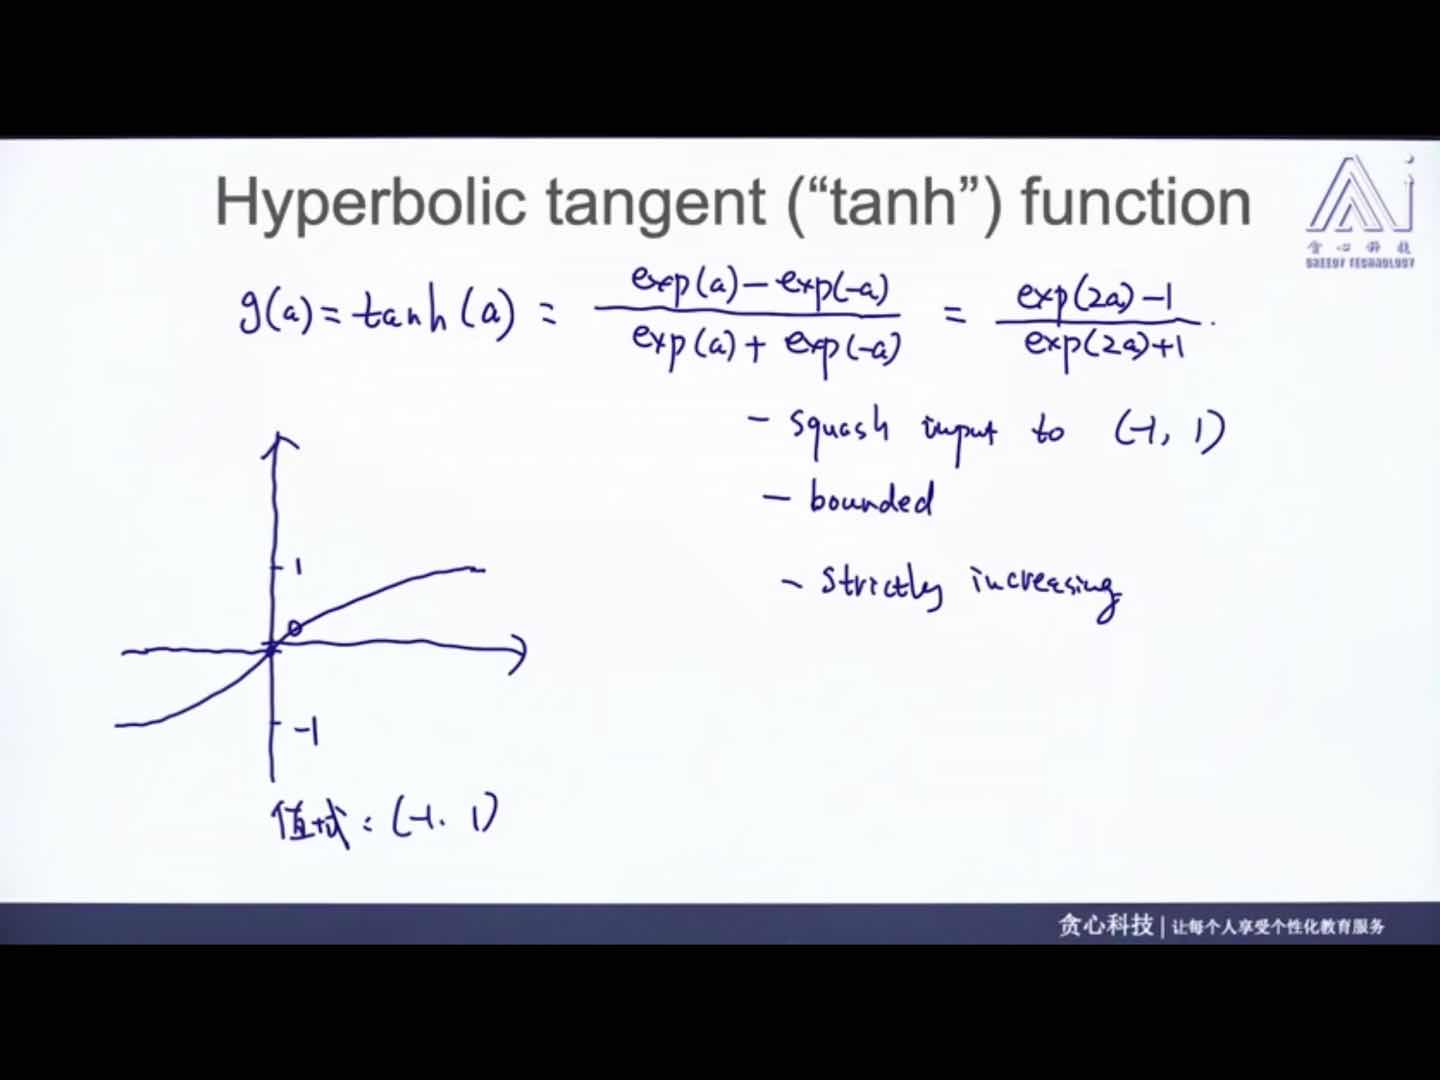 Hyperbolic tangent (“tanh”) function
贪心科技
GREEDY TECHNOLOGY
g(a) = tanh(a) = exp(a) - exp(-a) / exp(a) + exp(-a) = exp(2a) - 1 / exp(2a) + 1 .
- squash input to (-1, 1)
- bounded
- strictly increasing
1
0
-1
值域: (-1, 1)
贪心科技 | 让每个人享受个性化教育服务